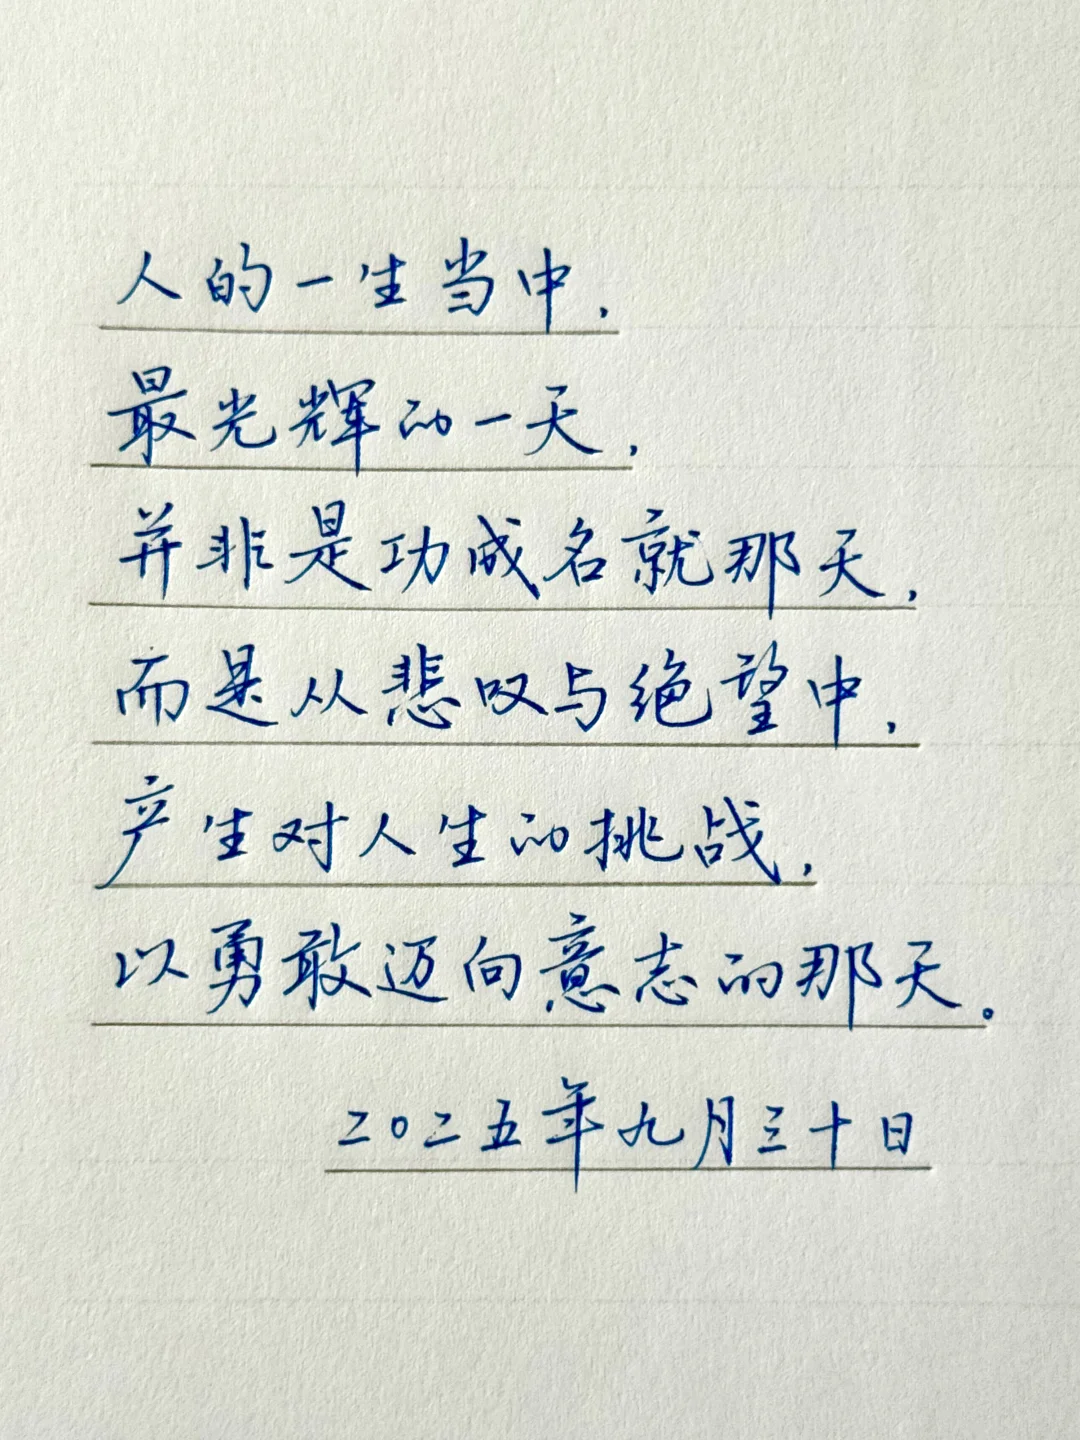 人的一生当中，
最光辉的一天，
并非是功成名就那天，
而是从悲叹与绝望中，
产生对人生的挑战，
以勇敢迈向意志的那天。
二〇二五年九月三十日